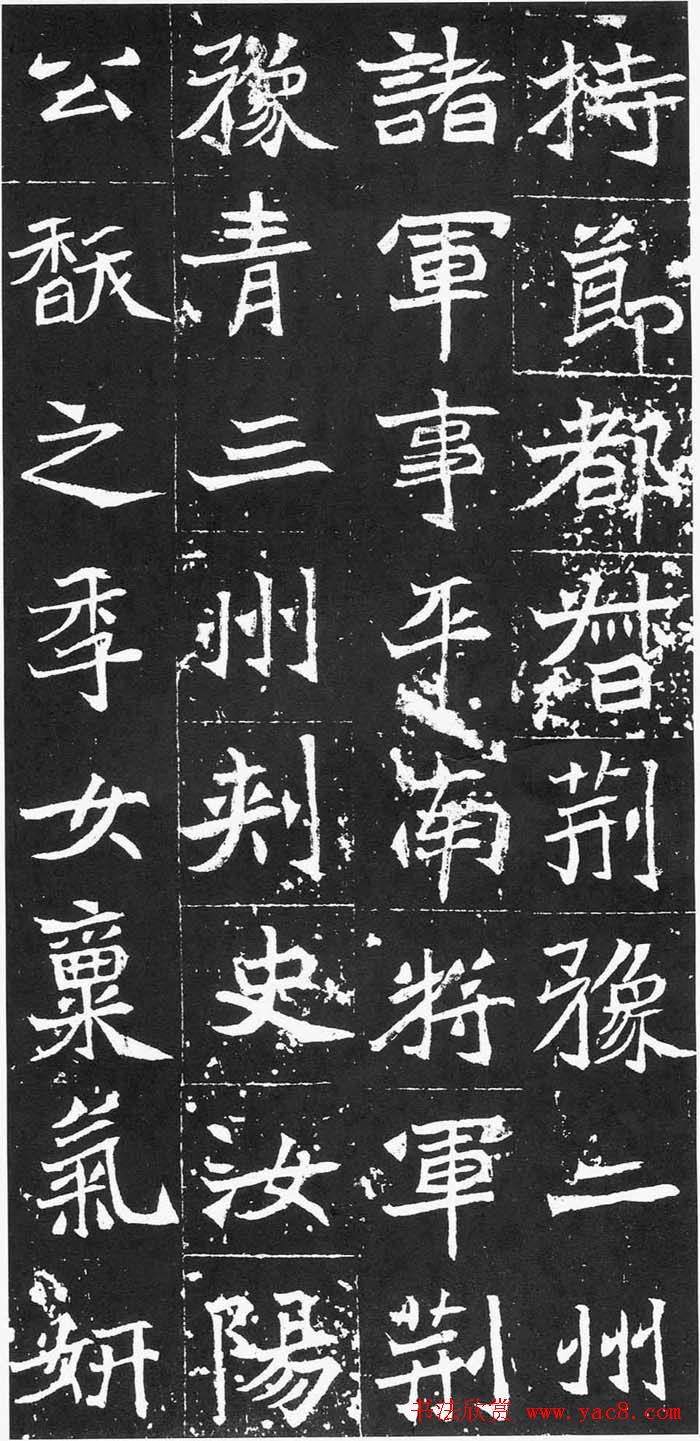 持節都督荊豫二州
諸軍事平南將軍荊
豫青三州刾史汝陽
公馛之季女稟氣妍
书法欣赏 www.yac8.com